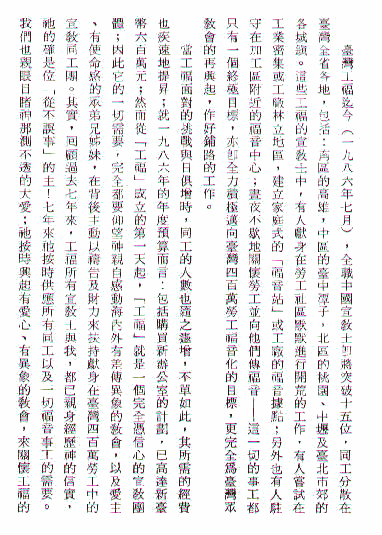 臺灣工福迄今（一九八六年七月），全職中國宣教士即將突破十五位，同工分散在
臺灣全省各地，包括：南區的高雄，中區的臺中潭子，北區的桃園、中壢及臺北市郊的
各城鎮。這些工福的宣教士中，有人獻身在勞工社區默默進行開荒的工作，有人嘗試在
工業密集或工廠林立地區，建立家庭式的「福音站」或工廠的福音據點；另外也有人駐
守在加工區附近的福音中心；晝夜不歇地關懷勞工並向他們傳福音——這一切的事工都
只有一個終極目標，亦即全力積極邁向臺灣四百萬勞工福音化的目標，更完全為臺灣眾
教會的再興起，作好鋪路的工作。
當工福面對的挑戰與日俱增時，同工的人數也隨之遞增，不單如此，其所需的經費
也疾速地提昇；就一九八六年的年度預算而言：包括購買新辦公室的計劃，已高達新臺
幣六百萬元；然而從「工福」成立的第一天起，「工福」就是一個完全憑信心的宣教團
體；因此它的一切需要，完全都要仰望神親自感動海內外有差傳異象的教會，以及愛主
、有使命感的眾弟兄姊妹，在背後主動以禱告及財力來扶持獻身在臺灣四百萬勞工中的
宣教同工團。其實，回顧過去七年來，工福所有宣教士與我，都已親身經歷神的信實，
祂的確是位「從不誤事」的主！七年來祂按時供應所有同工以及一切福音事工的需要。
我們也親眼目睹神那測不透的大愛；祂按時興起有愛心、有異象的教會，來關懷工福的